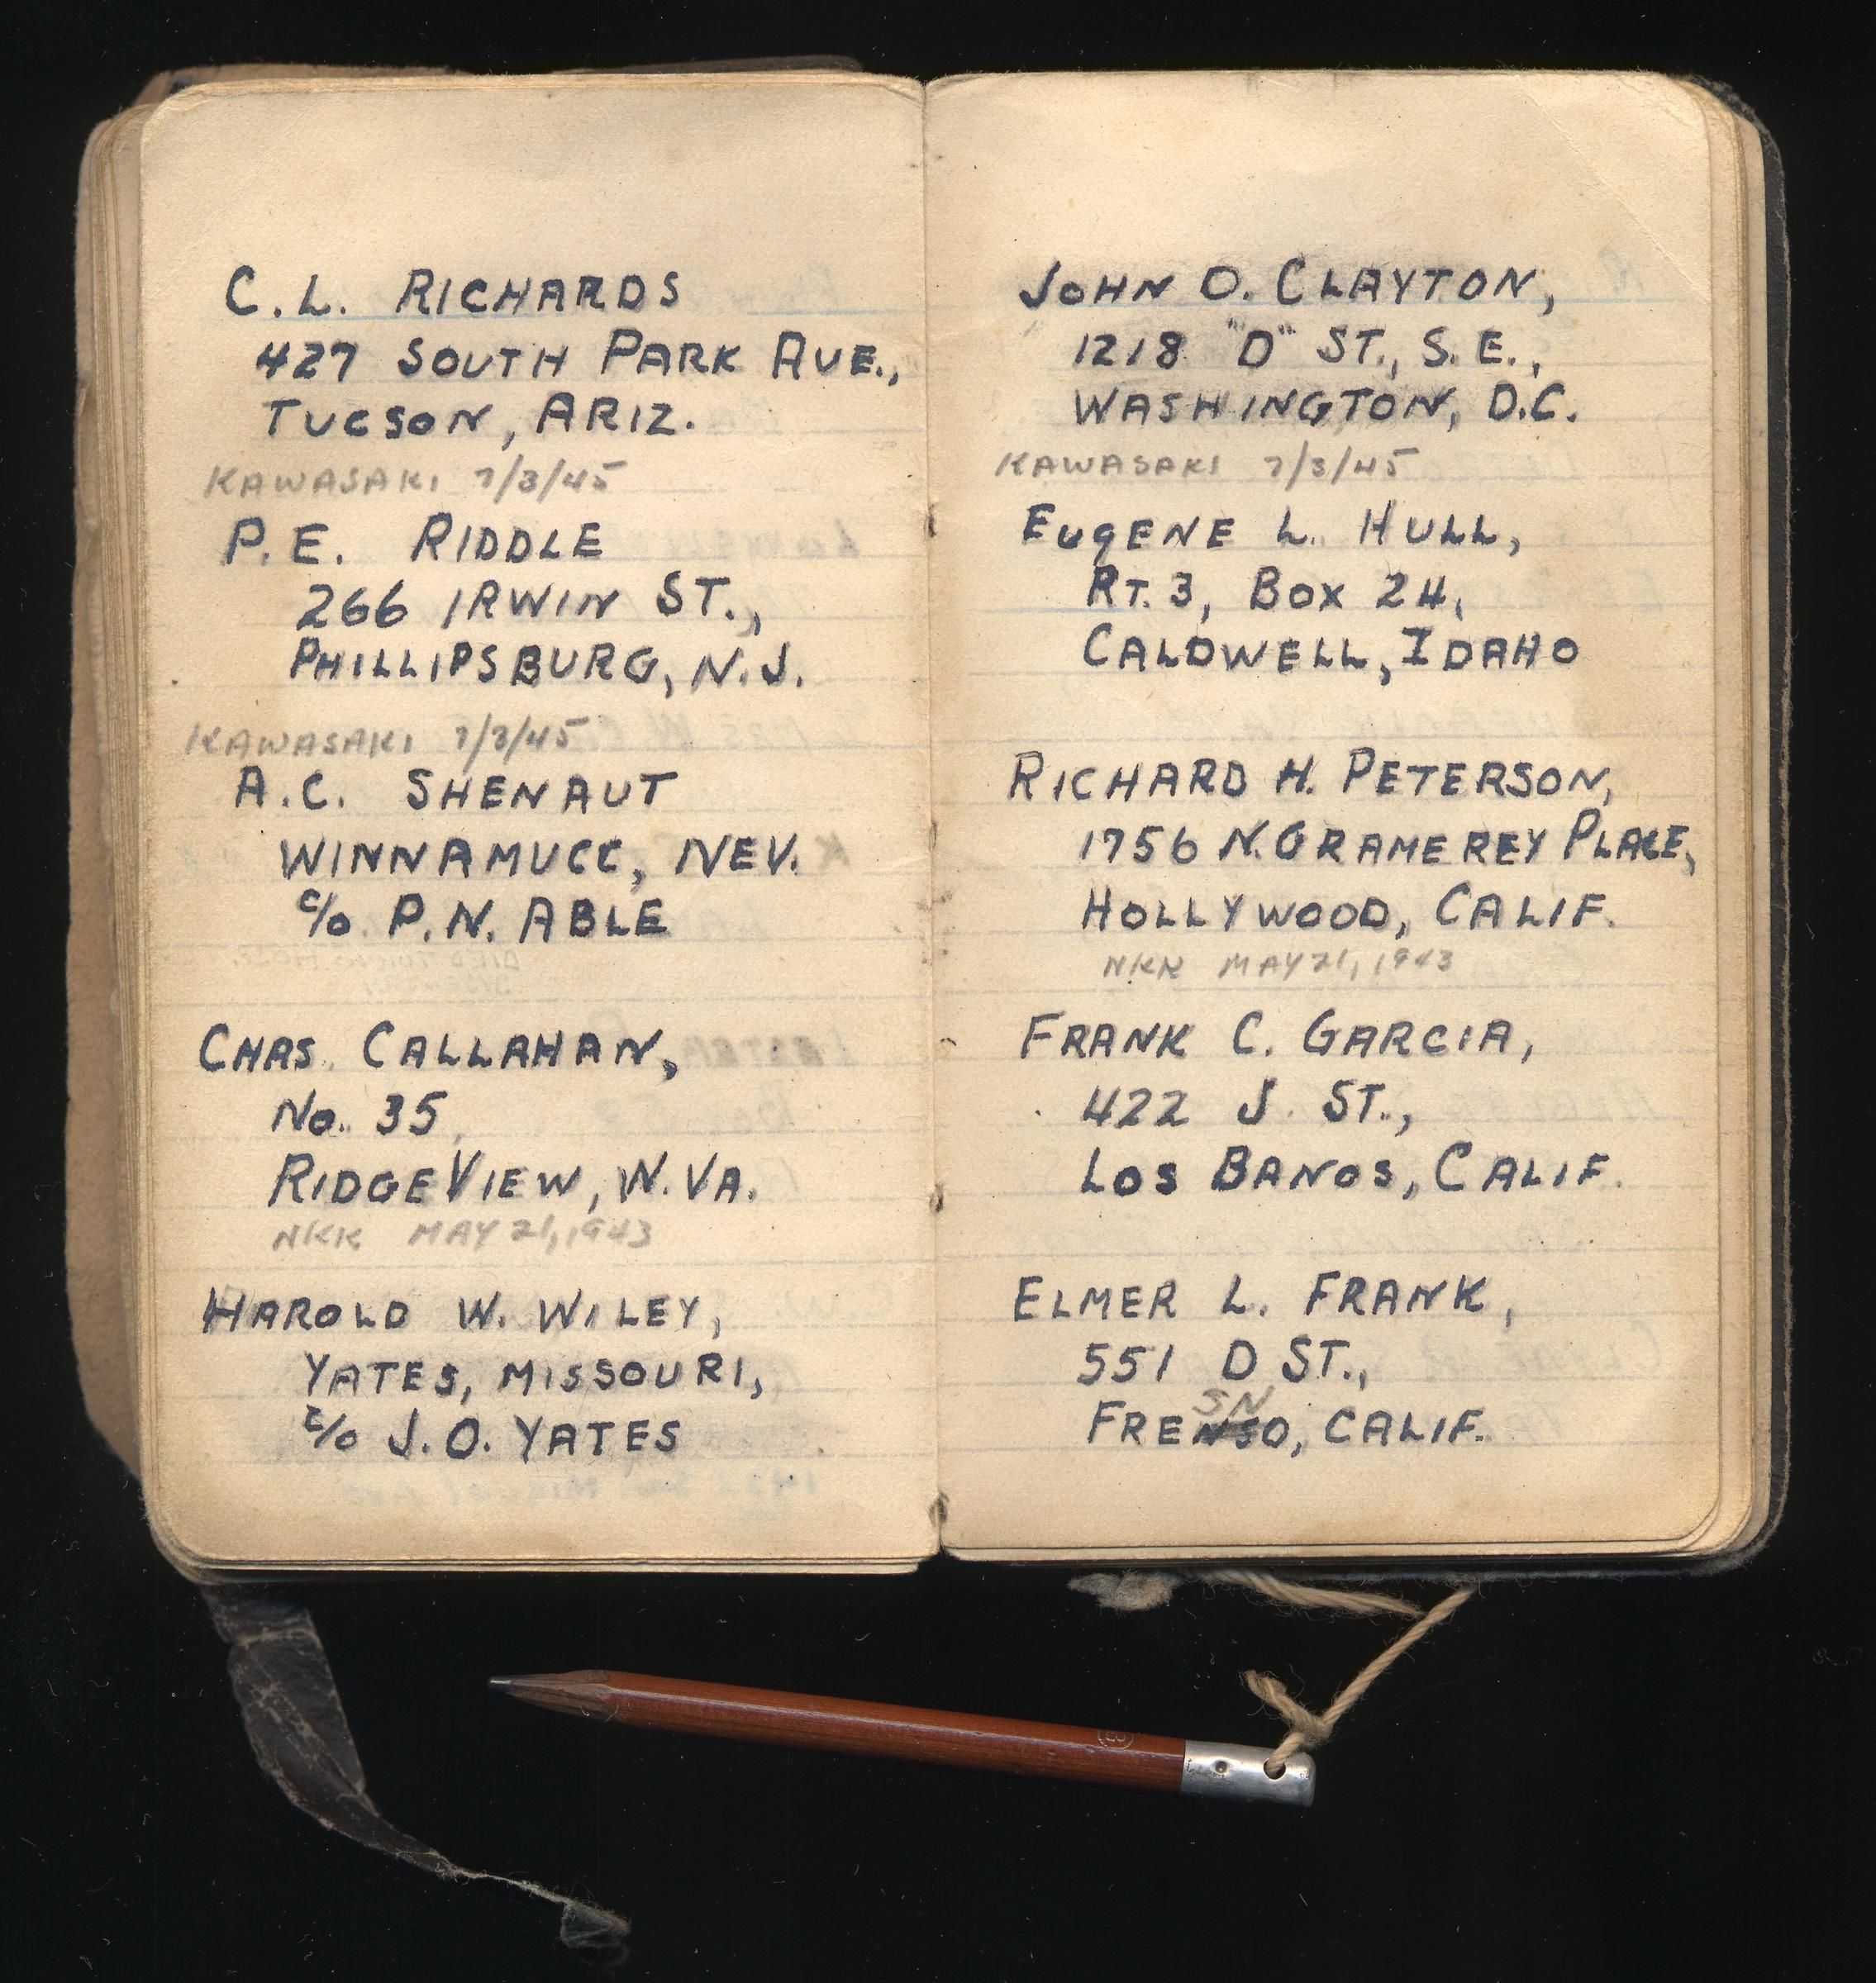 C. L. RICHARDS
427 SOUTH PARK AVE.,
TUCSON, ARIZ.
KAWASAKI 7/3/45
P. E. RIDDLE
266 IRWIN ST.,
PHILLIPSBURG, N. J.
KAWASAKI 7/3/45
A. C. SHENAUT
WINNAMUCC, NEV.
c/o P. N. ABLE
CHAS. CALLAHAN,
No. 35,
RIDGEVIEW, W. VA.
NKK MAY 21, 1943
HAROLD W. WILEY,
YATES, MISSOURI,
c/o J. O. YATES
JOHN O. CLAYTON,
1218 "D" ST., S. E.,
WASHINGTON, D.C.
KAWASAKI 7/3/45
EUGENE L. HULL,
RT. 3, BOX 24,
CALDWELL, IDAHO
RICHARD H. PETERSON,
1756 N. GRAMEREY PLACE,
HOLLYWOOD, CALIF.
NKK MAY 21, 1943
FRANK C. GARCIA,
422 J. ST.,
LOS BANOS, CALIF.
ELMER L. FRANK,
551 D ST.,
SN
FRENSO, CALIF.